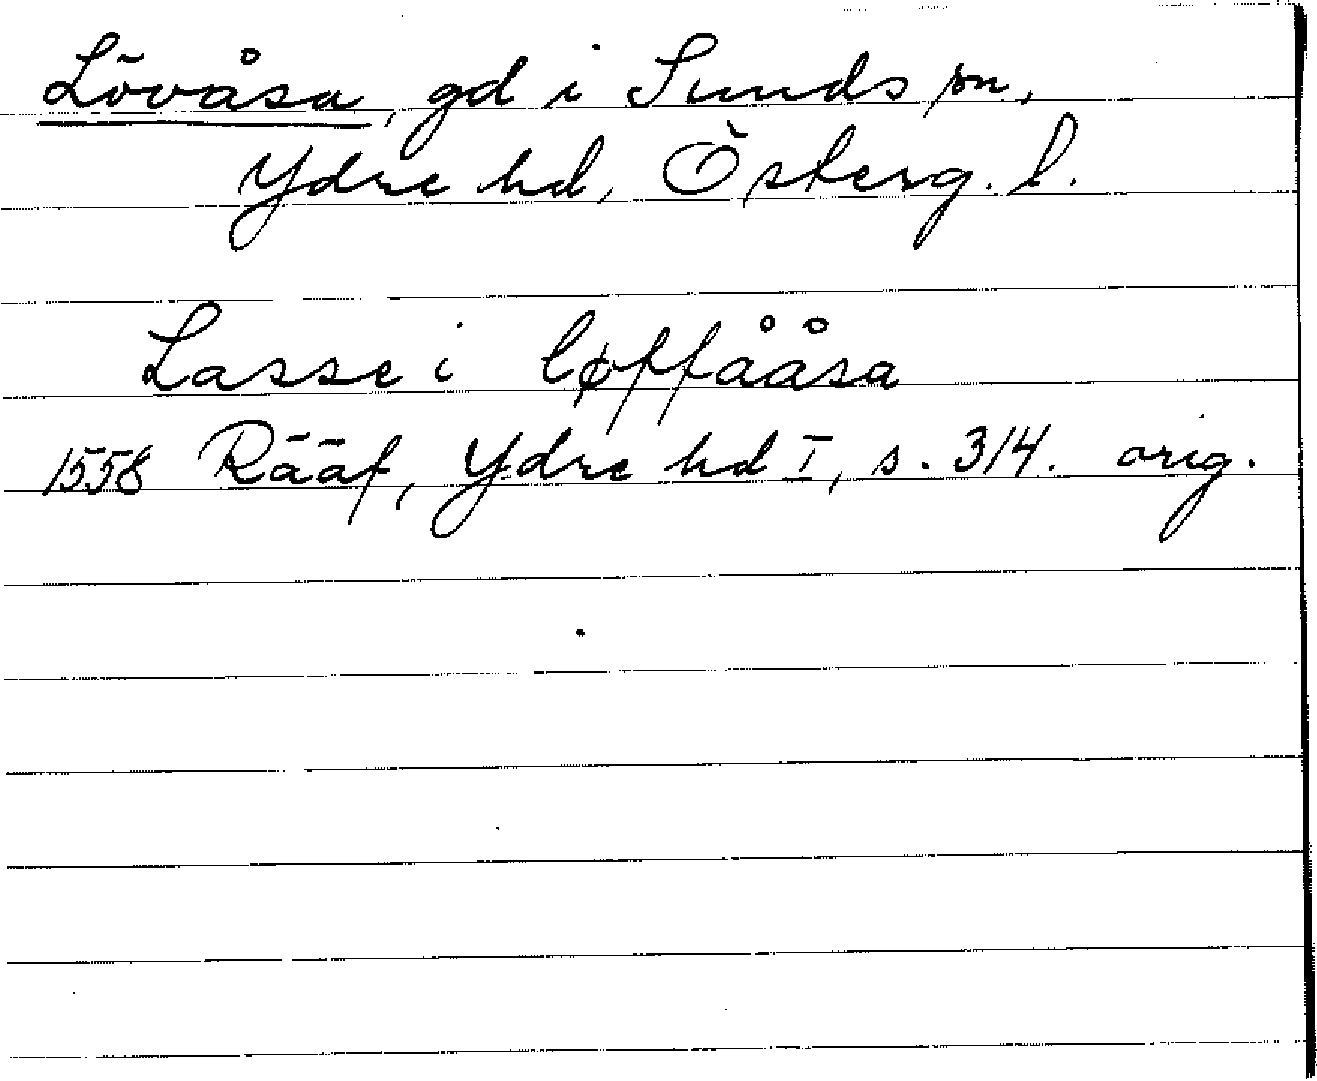 Lövåsa, gd i Sunds sn,
Ydre hd, Österg. l.
Lasse i løffååsa
1558 Rääf, Ydre hd I, s. 314. orig.